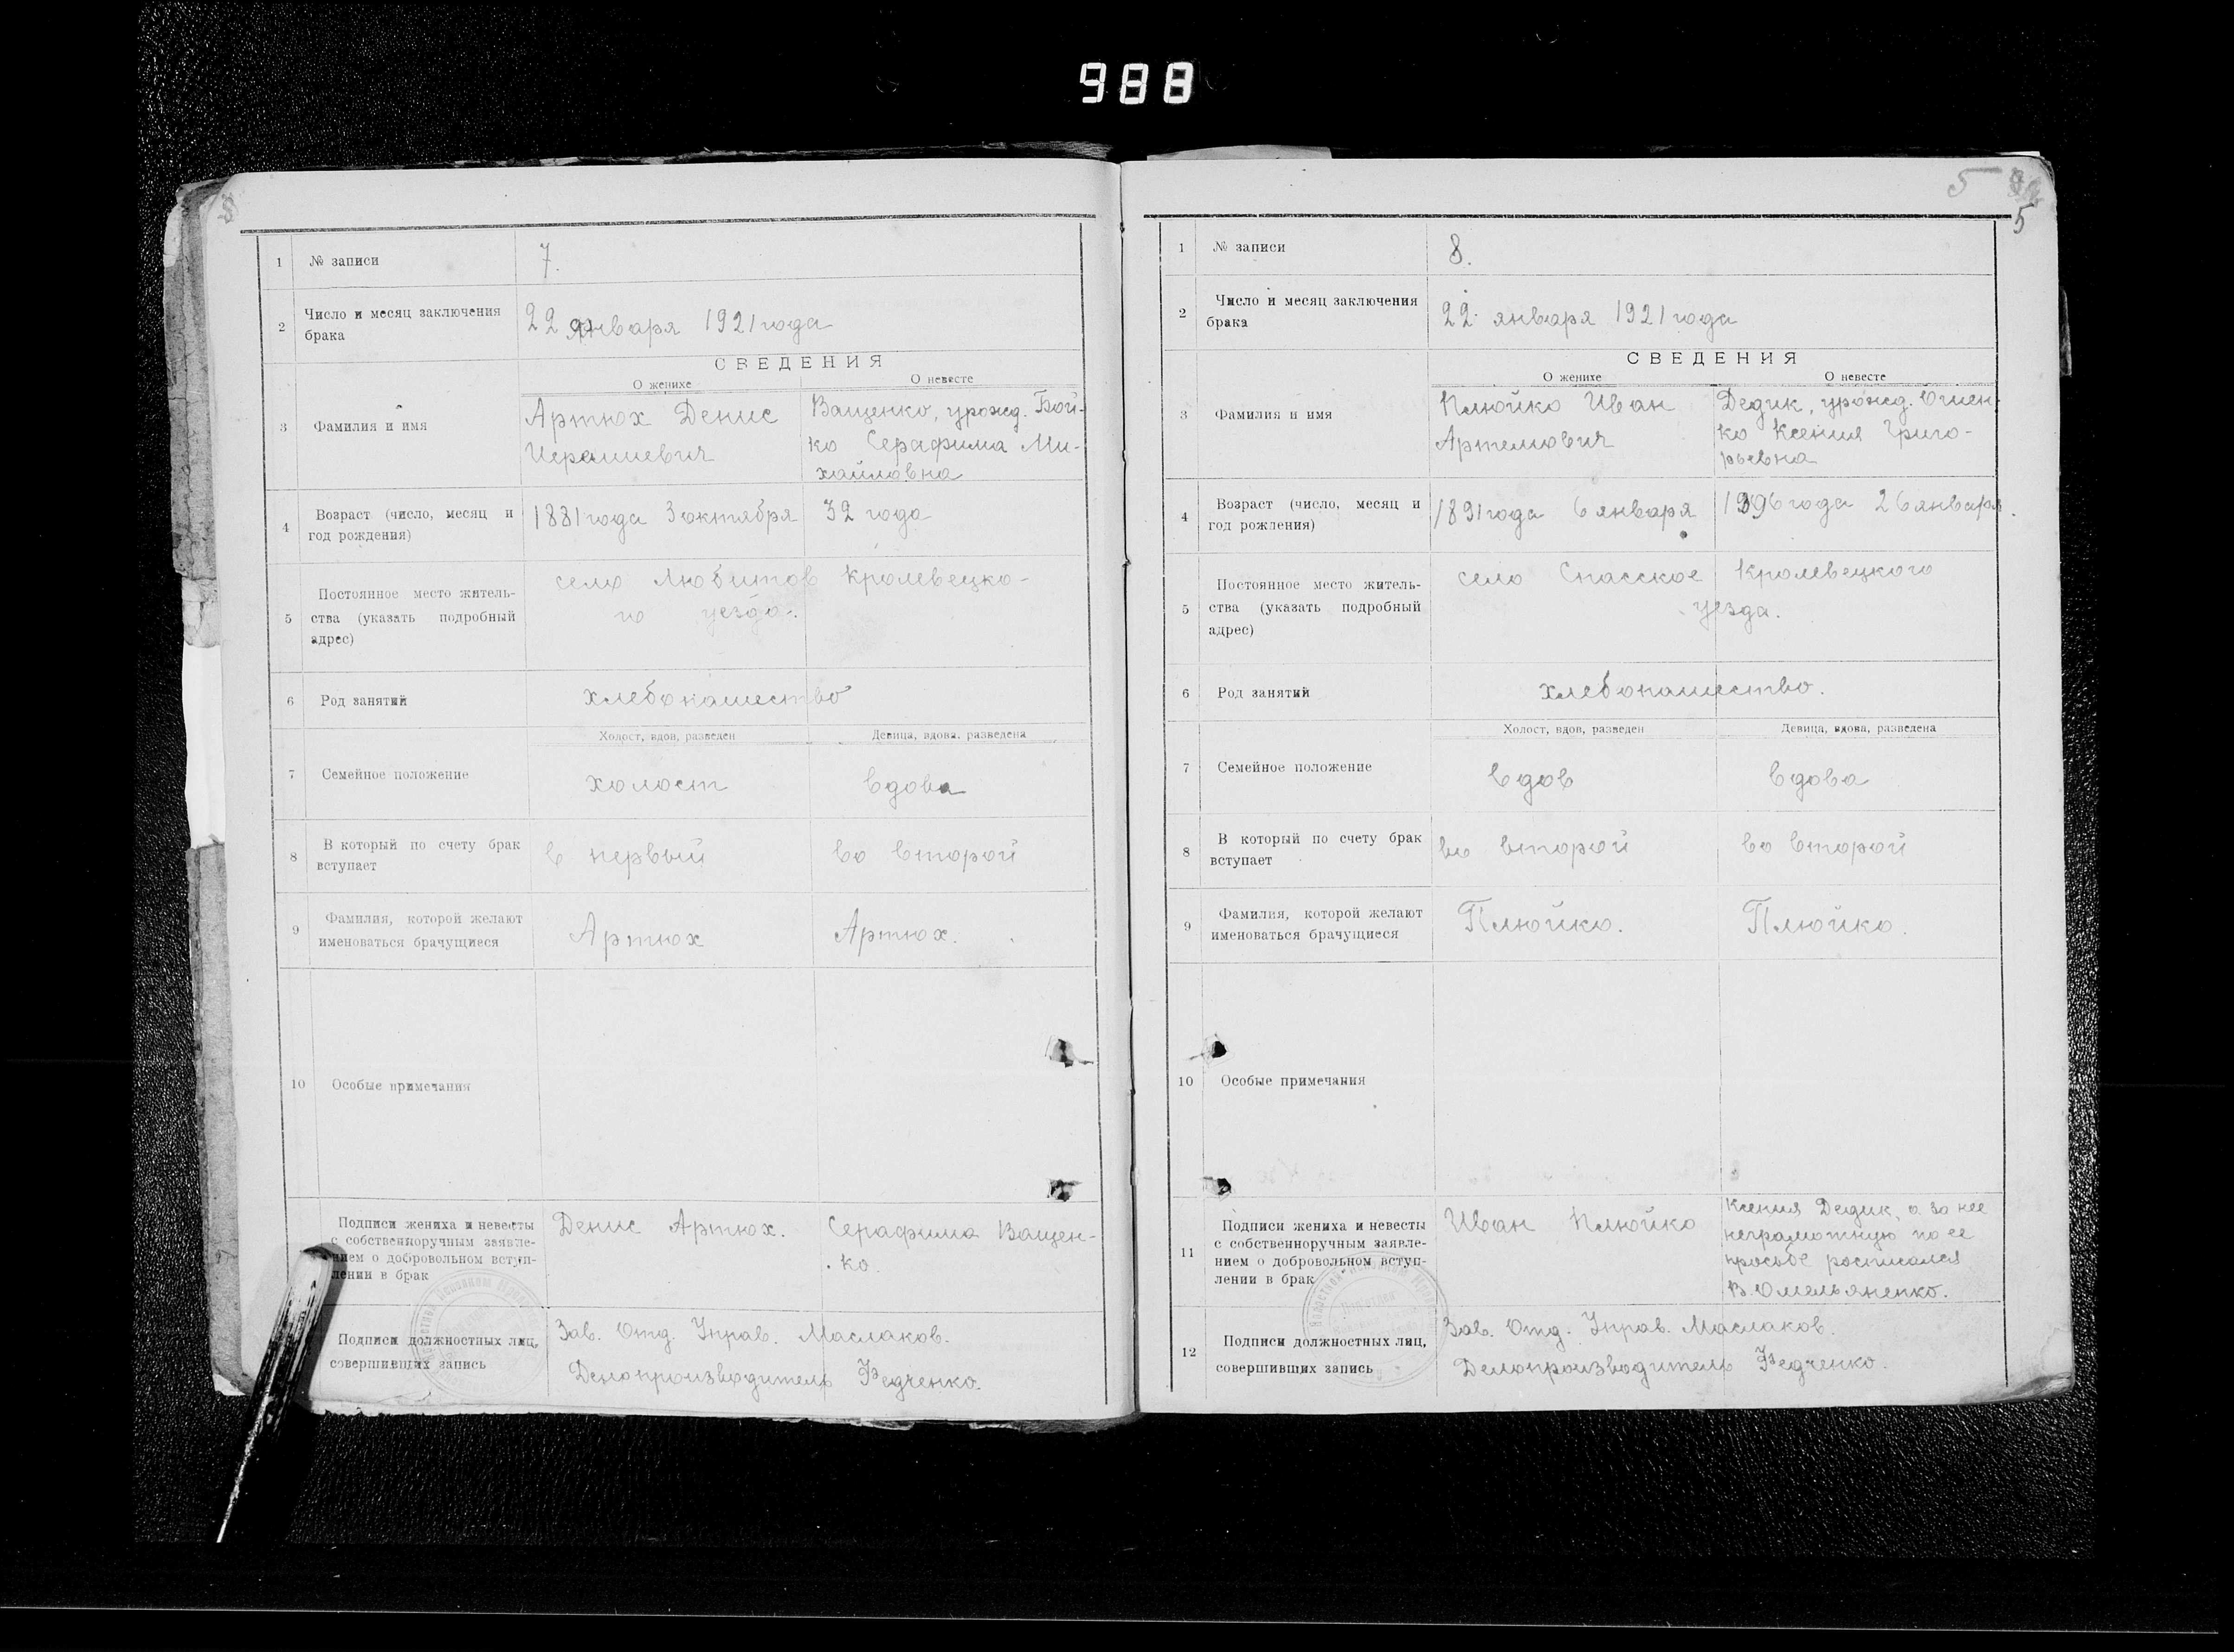 988
1 № записи 7.
2 Число и месяц заключения брака
22 января 1921 года
СВЕДЕНИЯ
О женихе О невесте
3 Фамилия и имя
Артюх Денис
Ващенко, урожд. Бой-
ко Серафима Ми-
хайловна
4 Возраст (число, месяц и
год рождения)
1881 года 3 октября 32 года
5 Постоянное место житель-
ства (указать подробный
адрес)
село Любитов Кролевецко-
го уезда.
6 Род занятий хлебопашество
Холост, вдов, разведен Девица, вдова, разведена
7 Семейное положение холост вдова
8 В который по счету брак
вступает
в первый во второй
9 Фамилия, которой желают
именоваться брачущиеся
Артюх Артюх.
10 Особые примечания
Подписи жениха и невесты
с собственноручным заявле-
нием о добровольном вступ-
лении в брак
Денис Артюх. Серафима Ващен-
ко.
Подписи должностных лиц,
совершивших запись
Зав. Отд. Управ. Маслаков.
Делопроизводитель Федченко.
5
5
1 № записи 8.
2 Число и месяц заключения
брака
22 января 1921 года
СВЕДЕНИЯ
О женихе О невесте
3 Фамилия и имя
Плюйко Иван
Артемович
Дедик, урожд.
ко Ксения Григо-
рьевна
4 Возраст (число, месяц и
год рождения)
1891 года 6 января 1896 года 26 января.
5 Постоянное место житель-
ства (указать подробный
адрес)
село Спасское Кролевецкого
уезда.
6 Род занятий хлебопашество.
Холост, вдов, разведен Девица, вдова, разведена
7 Семейное положение вдов вдова
8 В который по счету брак
вступает
во второй во второй
9 Фамилия, которой желают
именоваться брачущиеся
Плюйко. Плюйко.
10 Особые примечания
11 Подписи жениха и невесты
с собственноручным заявле-
нием о добровольном вступ-
лении в брак
Иван Плюйко
Ксения Дедик, а за нее
неграмотную по ее
просьбе росписался
В. Омельяненко.
12 Подписи должностных лиц,
совершивших запись
Зав. Отд. Управ. Маслаков.
Делопроизводитель Федченко.